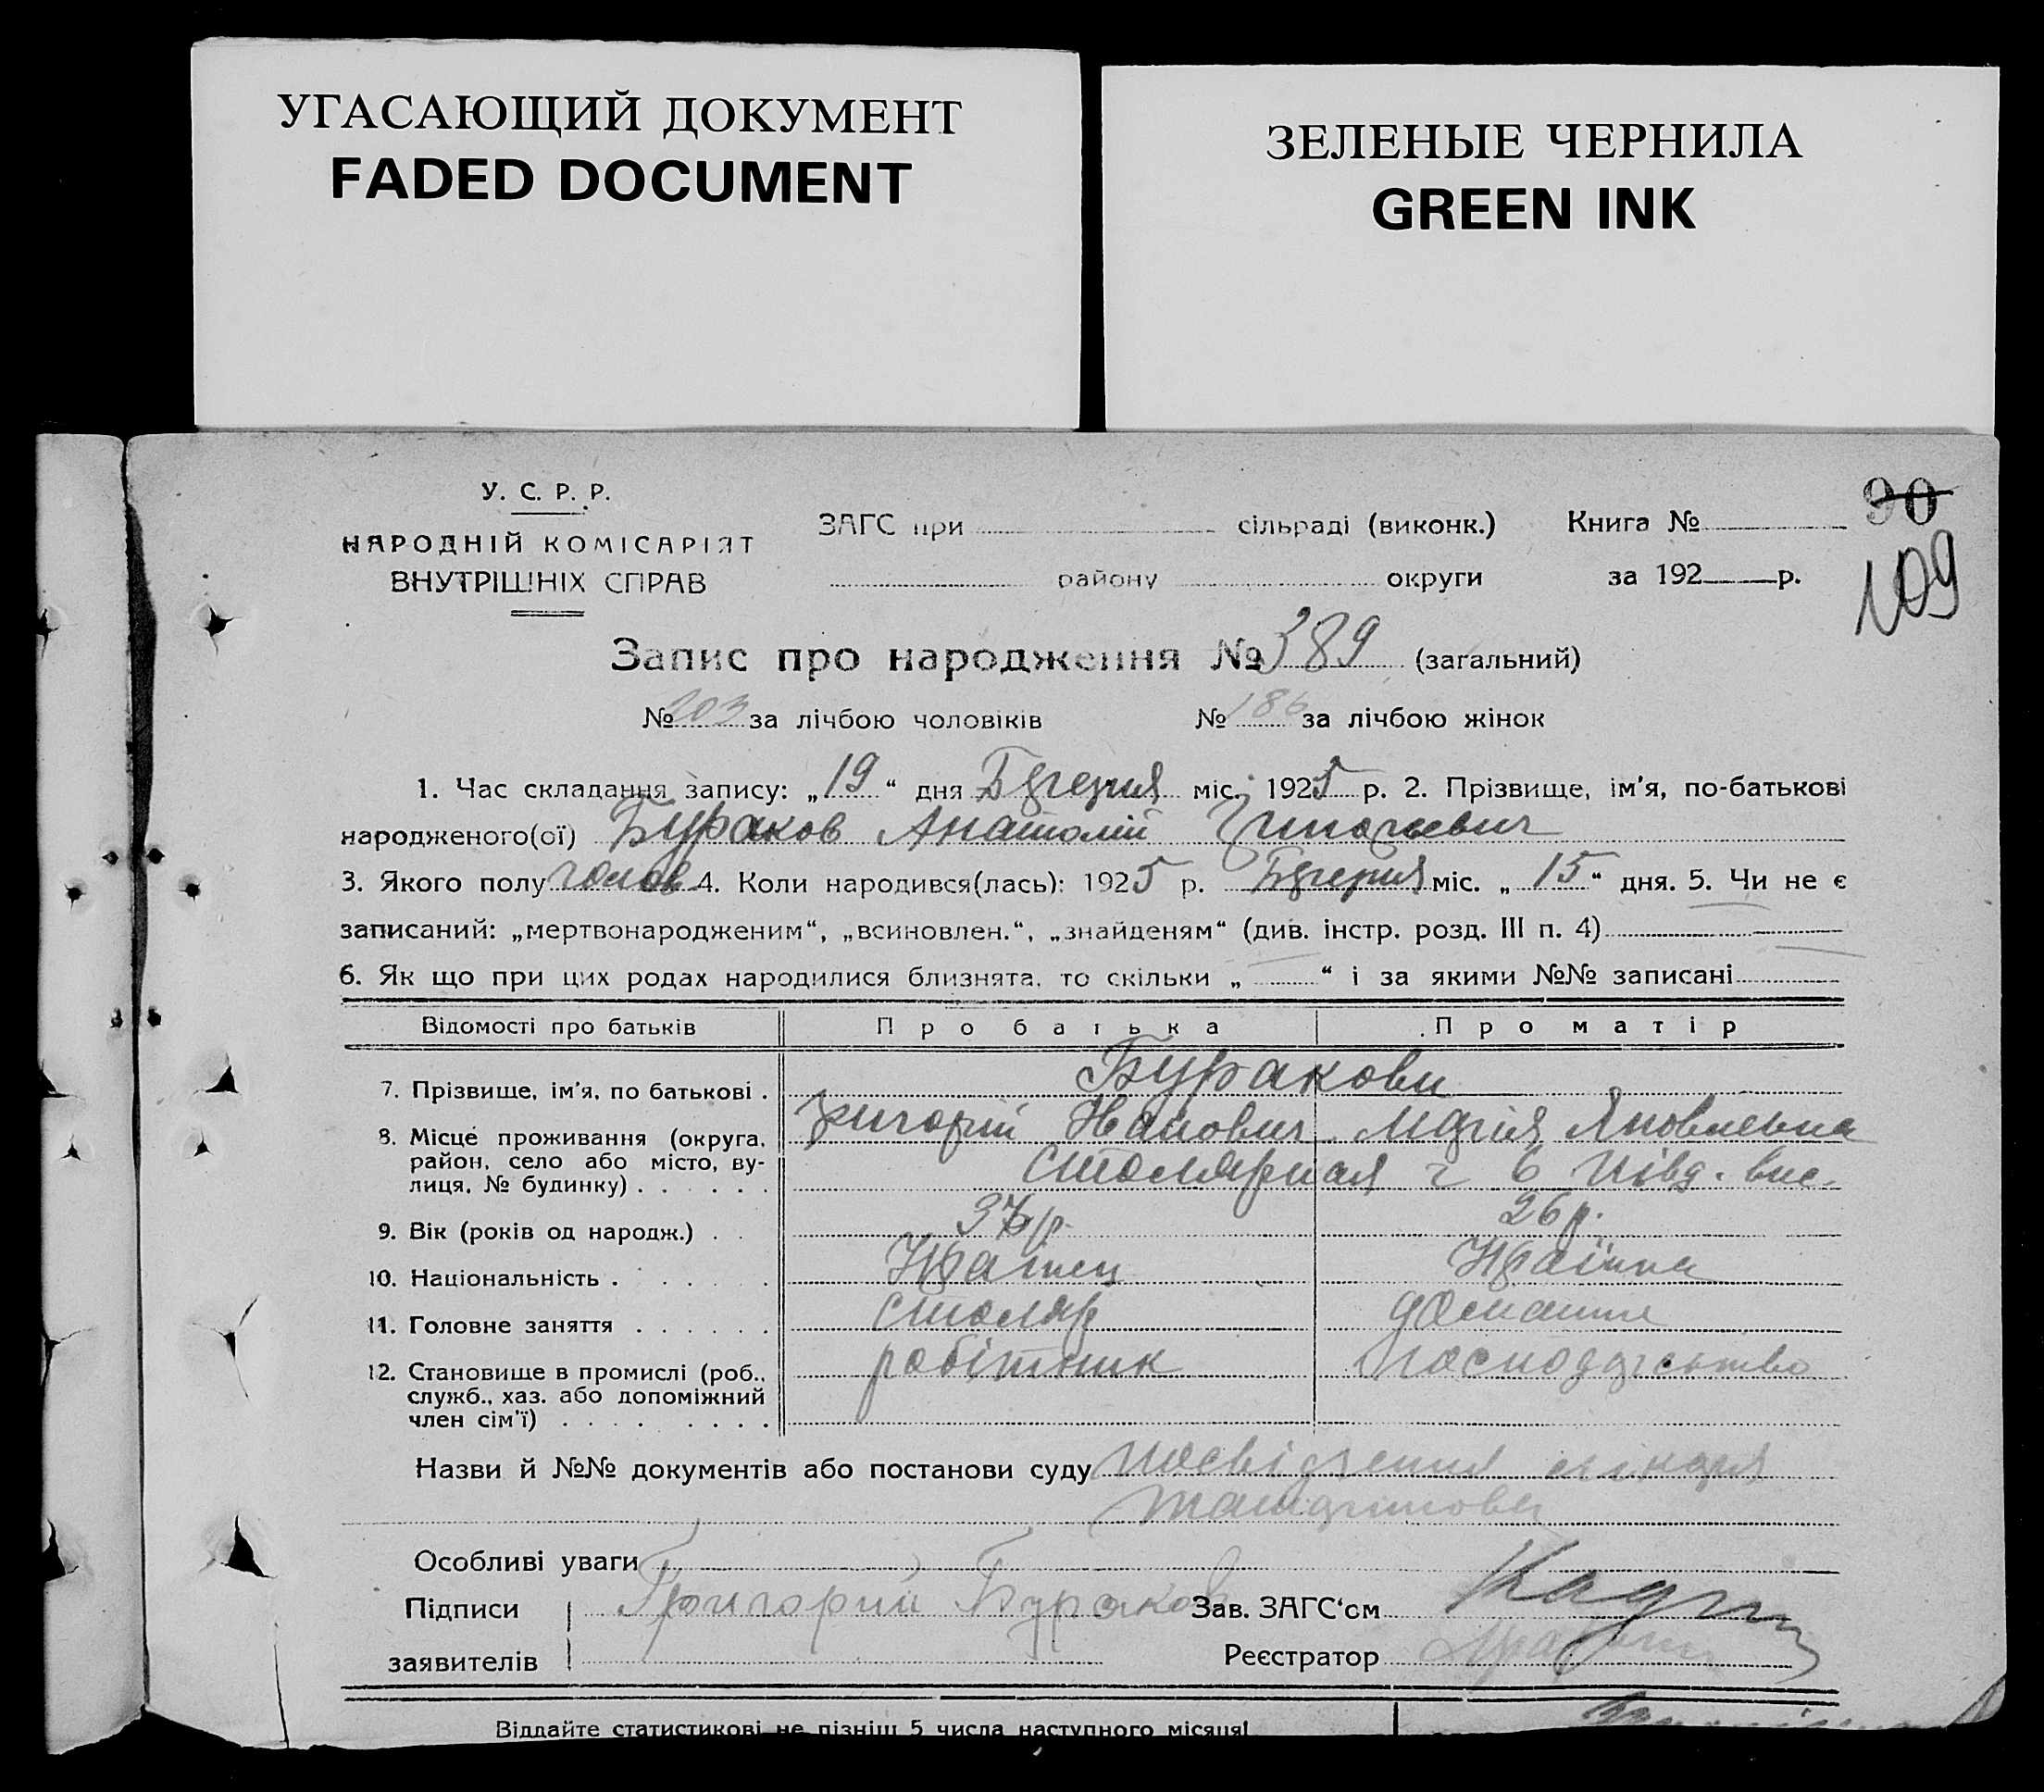 УГАСАЮЩИЙ ДОКУМЕНТ
FADED DOCUMENT
ЗЕЛЕНЫЕ ЧЕРНИЛА
GREEN INK
90
109
У. С. Р. Р.
НАРОДНІЙ КОМІСАРІЯТ
ВНУТРІШНІХ СПРАВ
ЗАГС при сільраді (виконк.) Книга №
району округи за 192 р.
Запис про народження № 389 (загальний)
№ 203 за лічбою чоловіків № 186 за лічбою жінок
1. Час складання запису: „19“ дня міс. 1925 р. 2. Прізвище, ім'я, по-батькові
народженого(ої) Бураков Анатолій Григорьевич
3. Якого полу чолов 4. Коли народився(лась): 1925 р. міс. „15“ дня. 5. Чи не є
записаний: „мертвонародженим“, „всиновлен.“, „знайденям“ (див. інстр. розд. III п. 4)
6. Як що при цих родах народилися близнята, то скільки „ “ і за якими №№ записані
Відомості про батьків Про батька Про матір
7. Прізвище, ім'я, по батькові . Буракови
Григорій Иванович Марія Яковлевна
8. Місце проживання (округа,
район, село або місто, ву-
лиця, № будинку) . . . . . Столярная 6 Півд.
9. Вік (років од народж.) . . р. 26 р.
10. Національність . . . . . Украінец Украінка
11. Головне заняття . . . . . . столяр домашнє
12. Становище в промислі (роб., робітник господарство
служб., хаз. або допоміжний
член сім'ї) . . . . . . . . .
Назви й №№ документів або постанови суду посвідчення лікаря
Особливі уваги
Підписи Григорий Бураков Зав. ЗАГС'ом
заявителів Реєстратор
Віддайте статистикові не пізніш 5 числа наступного місяця!